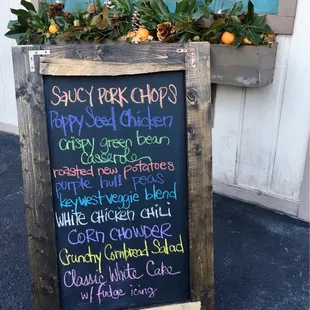 SaUCY PORK CHOPS
Poppy Seed Chicken
crispy green bean
Casserole
roasted new potatoes
purple hull peas
key west veggie blend
WHITE CHICKEN CHILI
CORN CHOWDER
Crunchy Cornbread Salad
Classic White Cake
w/ fudge icing